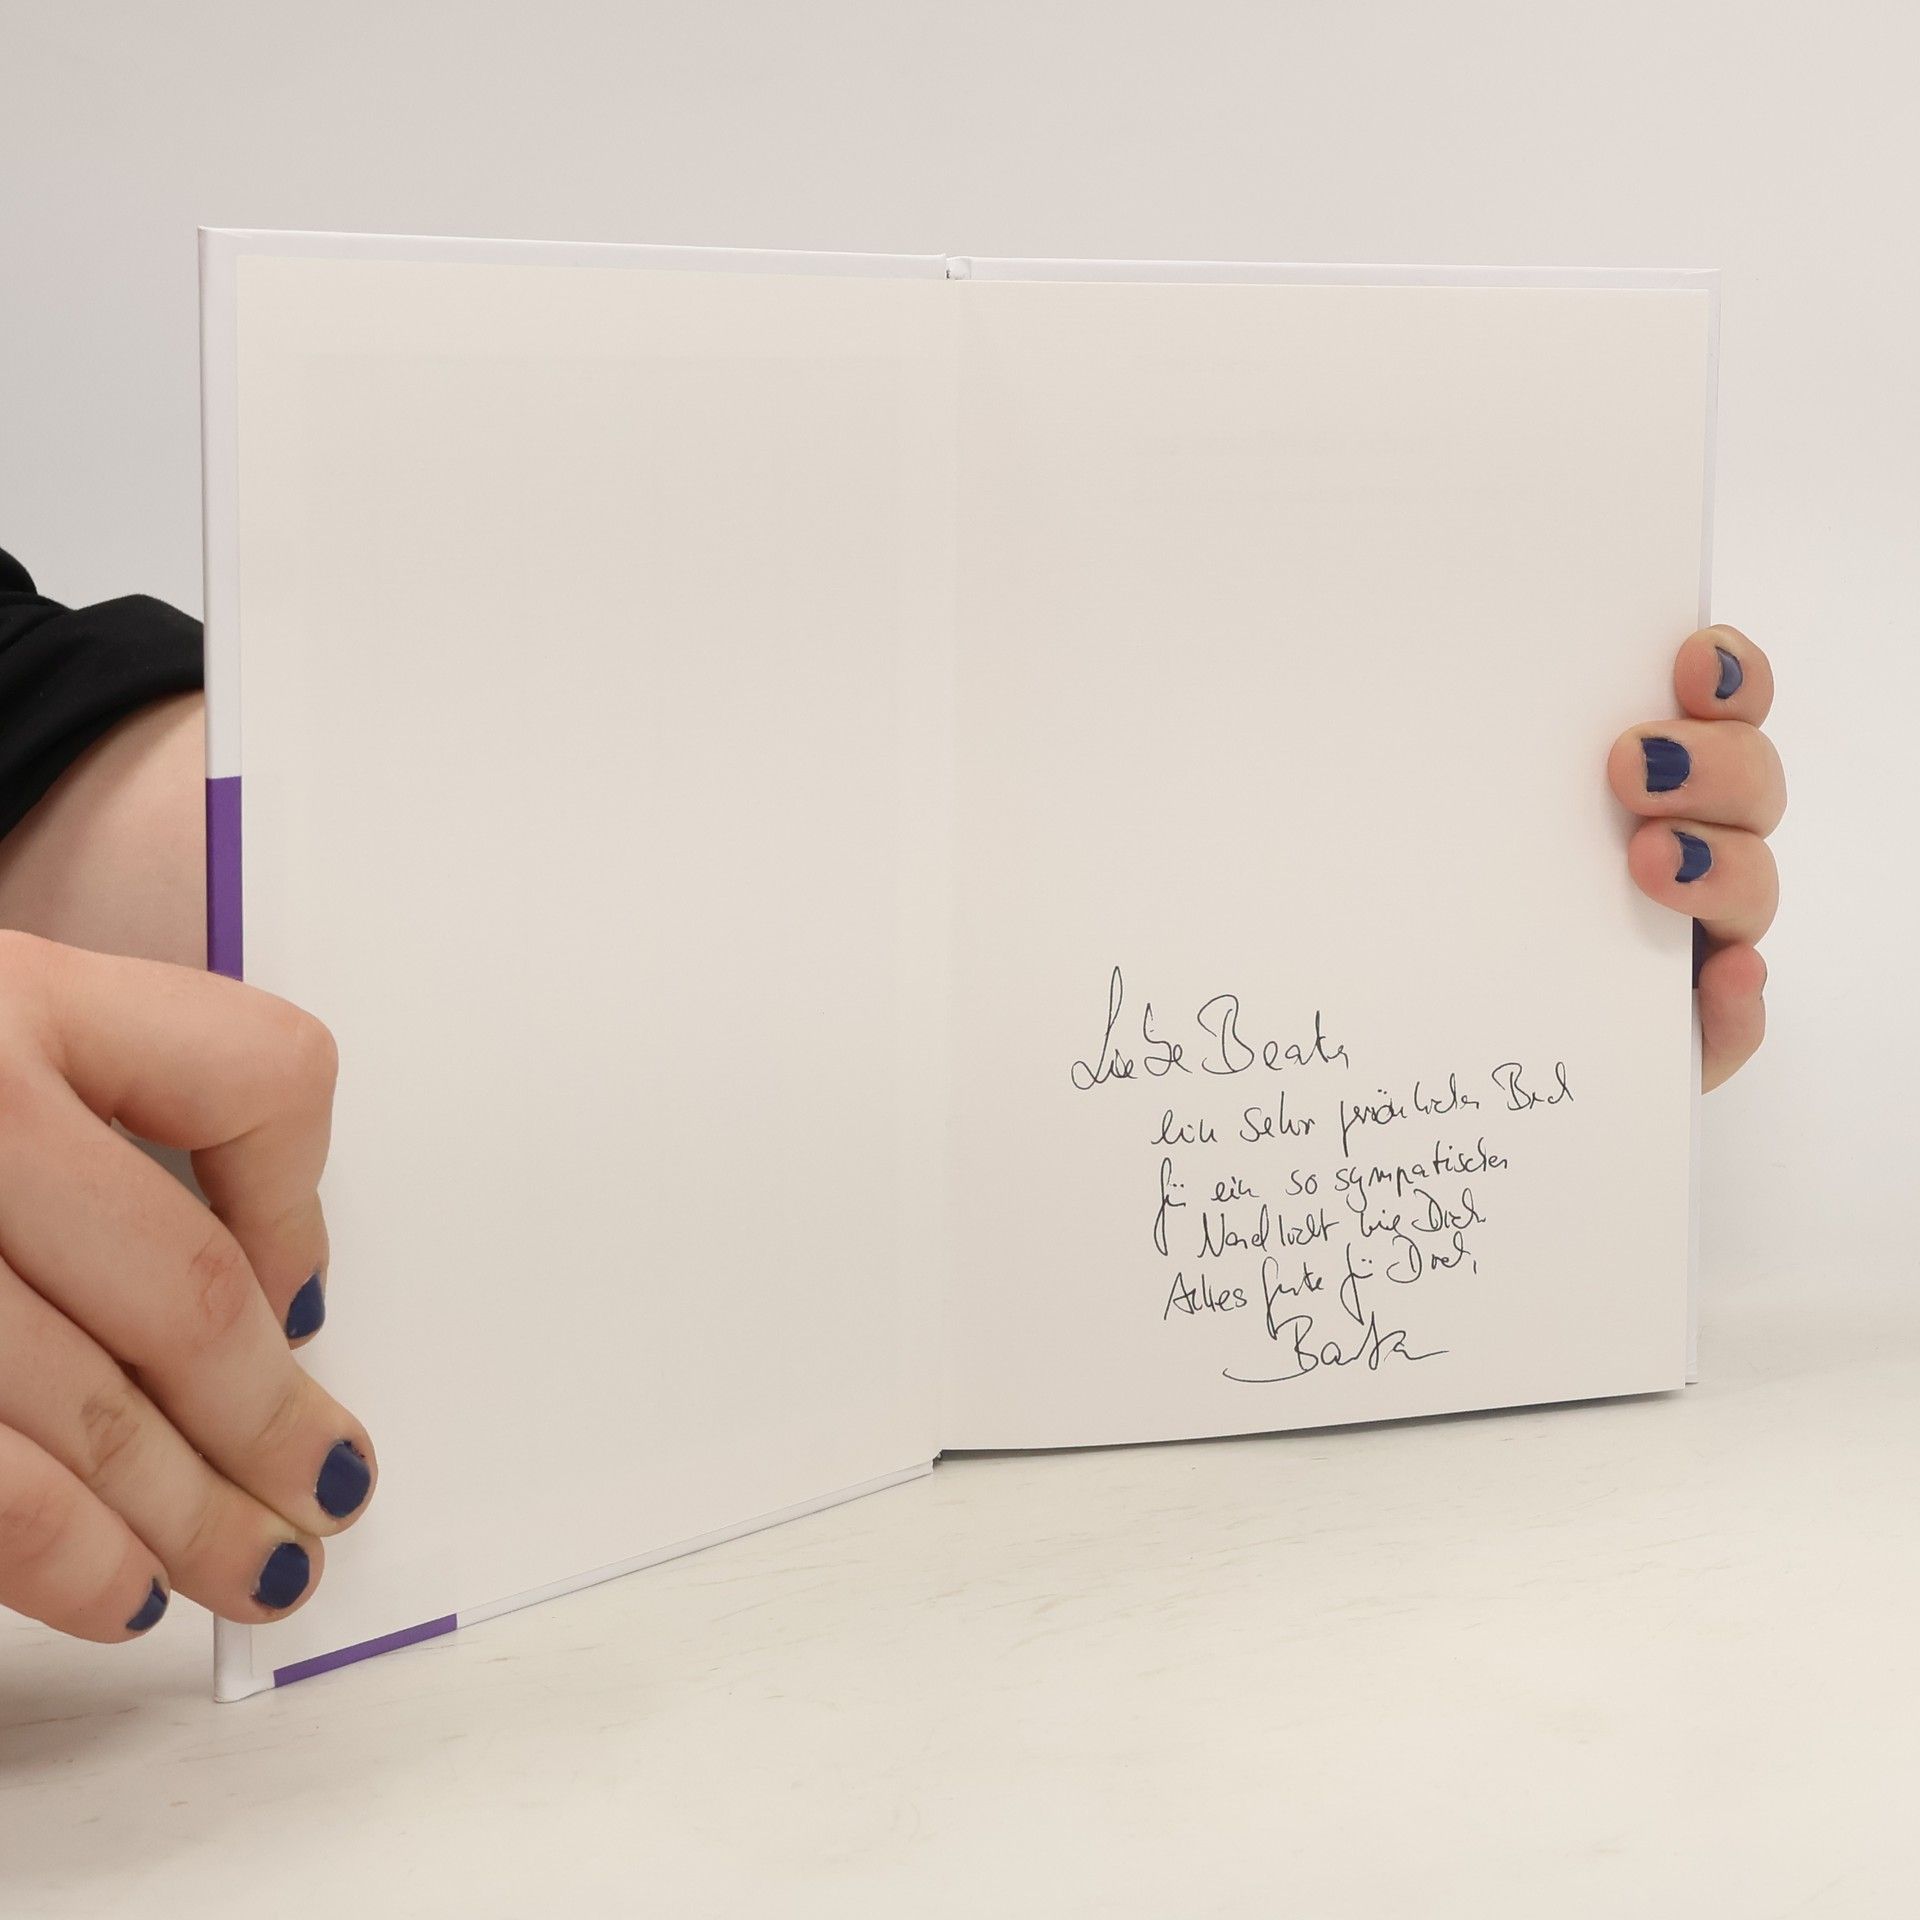 Liebe Beate
ein sehr persönliches Buch
für ein so sympatisches
Nordlicht wie Dich
Alles gute für Dich,